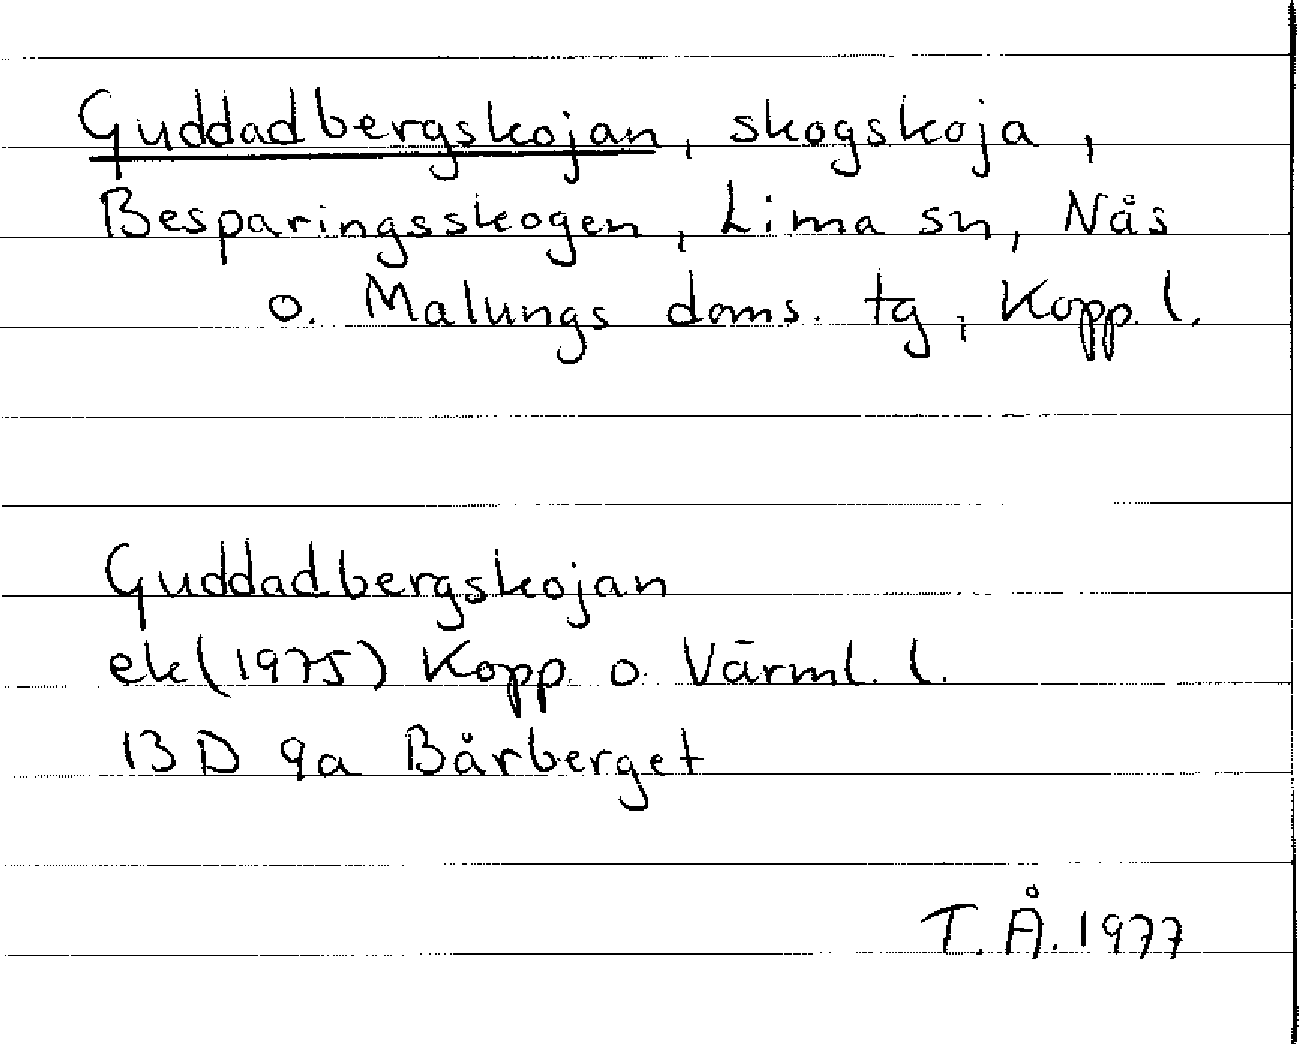 Guddadbergskojan, skogskoja,
Besparingsskogen, Lima sn, Nås
o. Malungs doms. tg, Kopp. l.
Guddadbergskojan
ek (1975) Kopp. o. Värml. l.
13 D 9a Bårberget
T. Å. 1977